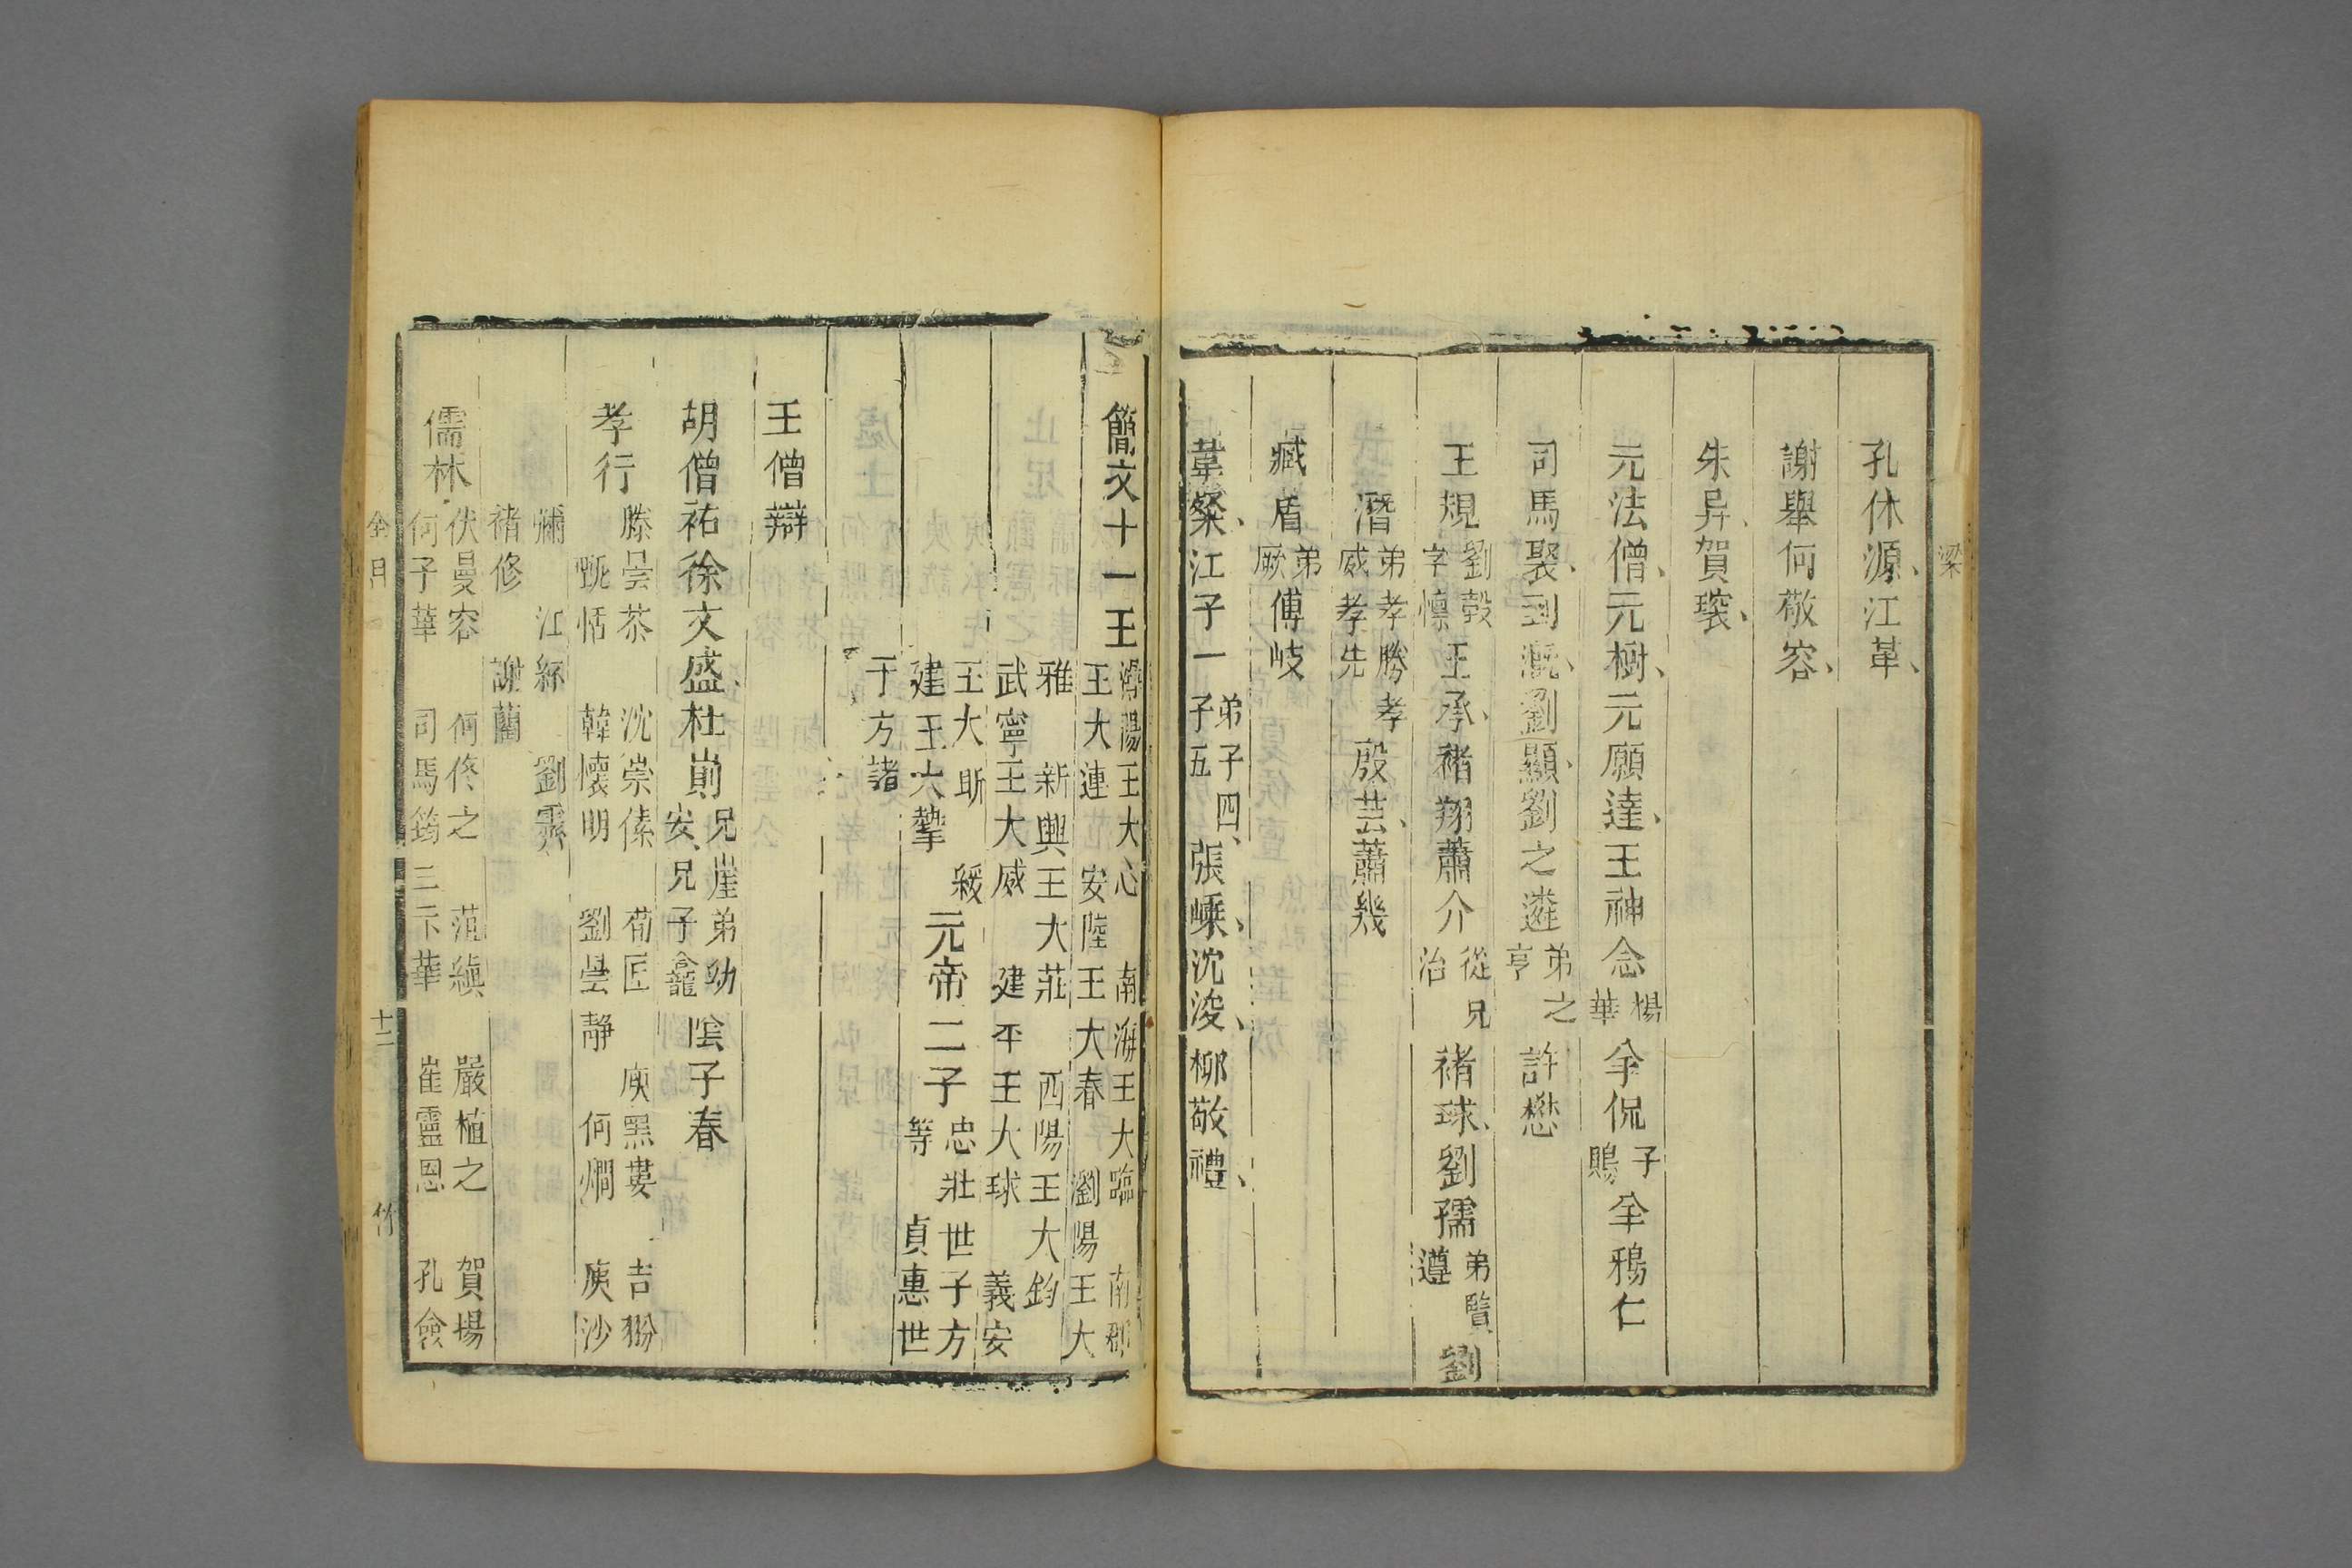 梁
孔休源、江革、
謝舉何敬容、
朱异、賀琛、
元法僧、元樹、元願達、王神念楊華羊侃子鵾羊鴉仁
司馬褧、到漑、劉顯、劉之遴弟之亨許懋
王規劉瑴字懍王承、褚翔蕭介從兄洽褚球、劉孺弟覽遵劉
潛弟孝勝孝威孝先殷芸、蕭幾
臧盾弟厥傅岐
韋粲、江子一弟子四、子五張嵊、沈浚、柳敬禮、
簡文十一王潯陽王大心 南海王大臨 南郡
王大連 安陸王大春 瀏陽王大
雅 新興王大莊 西陽王大鈞
武寧王大威 建平王大球 義安
王大昕 綏建王大摯元帝二子忠壯世子方等 貞惠世
子方諸
王僧辯
胡僧祐徐文盛、杜崱兄崖弟幼安、兄子龕陰子春
孝行滕曇恭 沈崇傃 荀匠 庾黔婁 吉翂
甄恬 韓懷明 劉曇静 何烱 庾沙
彌 江紑 劉霽
褚修 謝藺
儒林伏曼容 何佟之 范縝 嚴植之 賀瑒
何子華 司馬筠 三卞華 崔靈恩 孔僉
全目 十二 竹